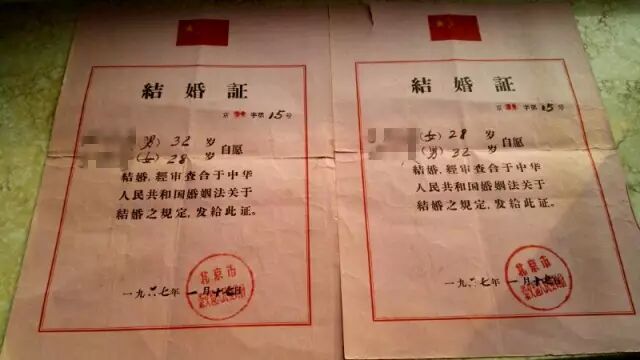 結婚証
京 字第15号
(男) 32 岁
(女) 28 岁
自愿
結婚,經审查合于中华
人民共和国婚姻法关于
結婚之規定,发給此证。
北京市
一九六七年一月十七日
結婚証
京 字第15号
(女) 28 岁
(男) 32 岁
自愿
結婚,經审查合于中华
人民共和国婚姻法关于
結婚之規定,发給此证。
北京市
一九六七年一月十七日